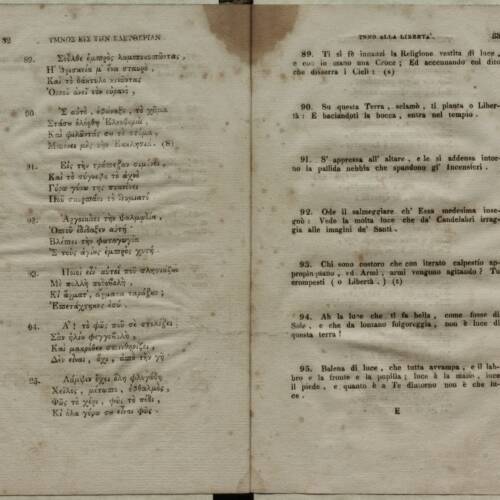 82 ΥΜΝΟΣ ΕΙΣ ΤΗΝ ΕΛΕΥΘΕΡΙΑΝ
89.
Ἡ Θρησκεία μ' ἕνα σταυρὸ,
Καὶ τὸ δάκτυλο κινῶντας
Ὁποῦ ἀνεῖ τὸν οὐρανὸ,
90.
Σ' αὐτὸ, ἐφώναξε, τὸ χῶμα
Στάσου ὁλόρθη Ἐλευθεριά,
Καὶ φιλῶντάς σου τὸ στόμα,
Μπαίνει μὲς τὴν Ἐκκλησιά. (8)
91.
Εἰς τὴν τράπεζαν σιμώνει,
Καὶ τὸ σύγνεφο τὸ ἀχνὸ
Γύρω γύρω της πυκνώνει
Ποῦ σκορπάει τὸ θυμιατό.
92.
Ἀγρικάει τὴν ψαλμῳδία,
Ὁποῦ ἐδίδαξεν αὐτή·
Βλέπει τὴν φωταγωγία
Σ τοὺς ἁγίους ἐμπρὸς χυτή.
93.
Ποιοὶ εἶν' αὐτοὶ ποῦ πλησιάζουν
Μὲ πολλὴ ποδοβολὴ,
Κι' ἄρματ', ἄρματα ταράζουν;
Ἐπετάχτηκες ἐσύ.
94.
Ἄ! τὸ φῶς ποῦ σὲ στολίζει,
Σὰν ἡλίου φεγγοβολὴ,
Καὶ μακρόθεν σπινθηρίζει,
Δὲν εἶναι, ὄχι, ἀπὸ τὴν γῆ.
95.
Λάμψιν ἔχει ὅλη φλογώδη
Χεῖλος, μέτωπο, ὀφθαλμὸς,
Φῶς τὸ χέρι, φῶς τὸ πόδι,
Κι' ὅλα γύρω σου εἶναι φῶς.
INNO ALLA LIBERTA'. 83
89. Ti si fè innanzi la Religione vestita di luce,
e con in mano una Croce; Ed accennando col dito
che disserra i Cieli: (s)
90. Su questa Terra, sclamò, ti pianta o Liber-
tà: E baciandoti la bocca, entra nel tempio.
91. S' appressa all' altare, e le si addensa intor-
no la pallida nebbia che spandono gl' Incensieri.
92. Ode il salmeggiare ch' Essa medesima inse-
gnò: Vede la molta luce che da' Candelabri irrag-
gia alle imagini de' Santi.
93. Chi sono costoro che con iterato calpestio ap-
propinquano, ed Armi, armi vengono agitando? Tu
crompesti (o Libertà.) (t)
94. Ah la luce che ti fa bella, come fosse di
Sole, e che da lontano folgoreggia, non è luce di
questa terra!
95. Balena di luce, che tutta avvampa, e il lab-
bro e la fronte e la pupilla; luce è la mano, luce
il piede, e quanto è a Te dintorno non è che lu-
ce.
E